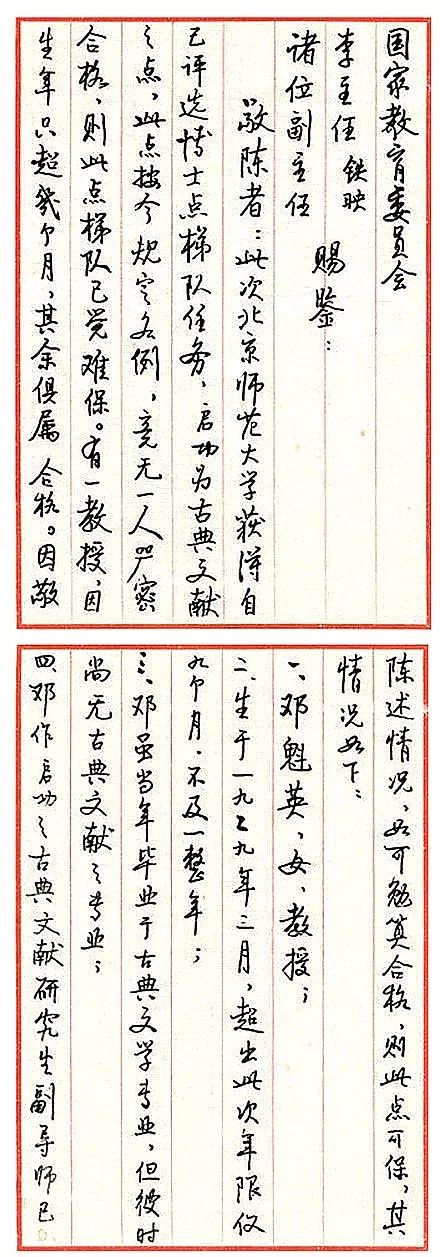 国家教育委员会
李主任铁映
诸位副主任
赐鉴：
敬陈者：此次北京师范大学获得自
己评选博士点梯队任务，启功为古典文献
之点，此点按今规定名例，竟无一人严密
合格，则此点梯队已觉难保。有一教授，因
生年只超几个月，其余俱属合格。因敬
陈述情况，如可勉算合格，则此点可保，其
情况如下：
一、邓魁英，女，教授；
二、生于一九二九年三月，超出此次年限仅
九个月，不及一整年；
三、邓虽当年毕业于古典文学专业，但彼时
尚无古典文献之专业；
四、邓作启功之古典文献研究生副导师已